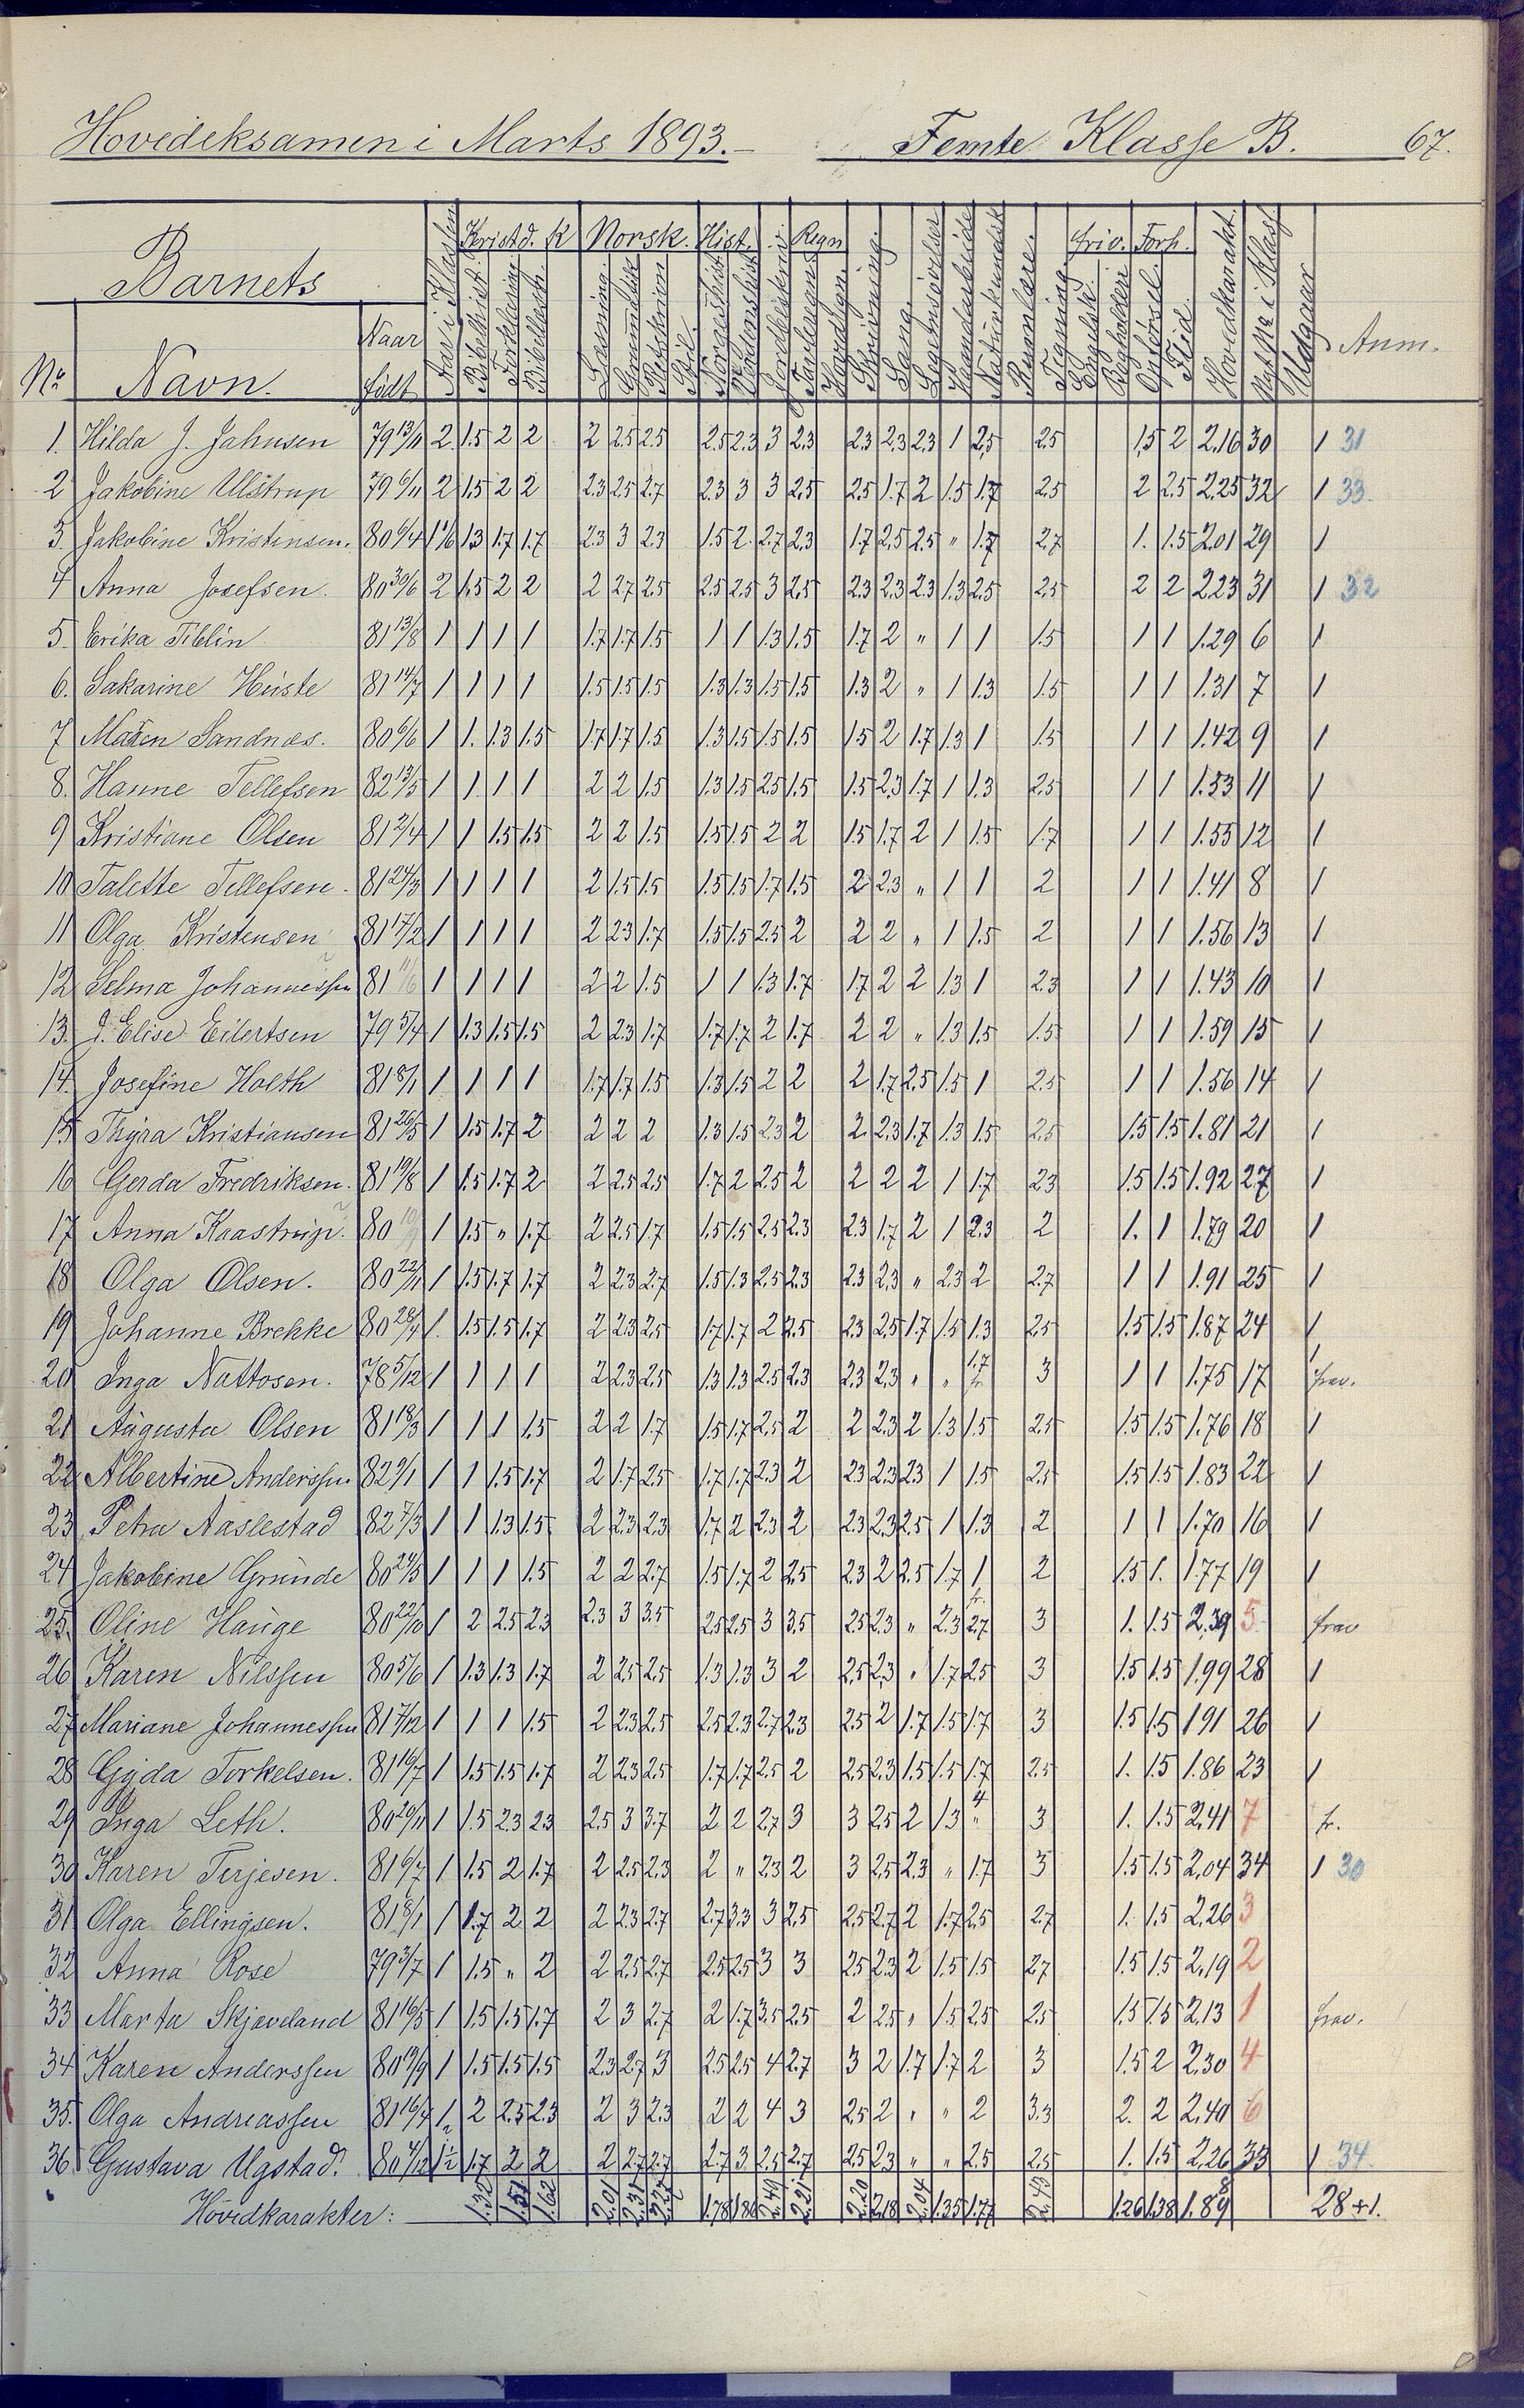 Hovedeksamen i Marts 1893.– Femte Klasse B. 67.
Barnets Kristd. K Norsk. Hist. Regn friv. Forh.
No Navn. Naar født Aar i Klassen Bibelhist. Forklaring Bibellæsn. Læsning Grammatik Retskrivn Stil. Norgeshist. Verdenshist Jordbeskriv. Tavleregn Hovedregn. Skrivning. Sang. Legemsøvelser Haandarbeide Naturkundsk Rumlære. Tegning Engelsk. Bogholderi Opførsel. Flid. Hovedkarakt. Nyt No i Klasse Udgaar Anm.
1. Hilda J. Jahnsen 79 13/11 2 1.5 2 2 2 2.5 2.5 2.5 2.3 3 2.3 2.3 2.3 2.3 1 2.5 2.5 1.5 2 2.16 30 1 31
2 Jakobine Ulstrup 79 6/11 2 1.5 2 2 2.3 2.5 2.7 2.3 3 3 2.5 2.5 1.7 2 1.5 1.7 2.5 2 2.5 2.25 32 1 33
3. Jakobine Kristensen. 80 6/4 1 1/6 1.3 1.7 1.7 2.3 3 2.3 1.5 2. 2.7 2.3 1.7 2.5 2.5 " 1.7 2.7 1. 1.5 2.01 29 1
4 Anna Josefsen. 80 30/6 2 1.5 2 2 2 2.7 2.5 2.5 2.5 3 2.5 2.3 2.3 2.3 1.3 2.5 2.5 2 2 2.23 31 1 32
5. Erika Tiblin 81 13/8 1 1 1 1 1.7 1.7 1.5 1 1 1.3 1.5 1.7 2 " 1 1 1.5 1 1 1.29 6 1
6. Sakarine Heiste 81 14/7 1 1 1 1 1.5 1.5 1.5 1.3 1.3 1.5 1.5 1.3 2 " 1 1.3 1.5 1 1 1.31 7 1
7 Maren Sandnæs. 80 6/6 1 1. 1.3 1.5 1.7 1.7 1.5 1.3 1.5 1.5 1.5 1.5 2 1.7 1.3 1 1.5 1 1 1.42 9 1
8. Hanne Tellefsen 82 13/5 1 1 1 1 2 2 1.5 1.3 1.5 2.5 1.5 1.5 2.3 1.7 1 1.3 2.5 1 1 1.53 11 1
9 Kristiane Olsen 81 2/4 1 1 1.5 1.5 2 2 1.5 1.5 1.5 2 2 1.5 1.7 2 1 1.5 1.7 1 1 1.55 12 1
10 Talette Tellefsen. 81 24/3 1 1 1 1 2 1.5 1.5 1.5 1.5 1.7 1.5 2 2.3 " 1 1 2 1 1 1.41 8 1
11 Olga Kristensen 81 17/2 1 1 1 1 2 2.3 1.7 1.5 1.5 2.5 2 2 2 " 1 1.5 2 1 1 1.56 13 1
12 Selma Johannessen 81 11/6 1 1 1 1 2 2 1.5 1 1 1.3 1.7 1.7 2 2 1.3 1 2.3 1 1 1.43 10 1
13. J. Elise Eilertsen 79 5/4 1 1.3 1.5 1.5 2 2.3 1.7 1.7 1.7 2 1.7 2 2 " 1.3 1.5 1.5 1 1 1.59 15 1
14. Josefine Holth 81 8/1 1 1 1 1 1.7 1.7 1.5 1.3 1.5 2 2 2 1.7 2.5 1.5 1 2.5 1 1 1.56 14 1
15 Thyra Kristiansen 81 26/5 1 1.5 1.7 2 2 2 2 1.3 1.5 2.3 2 2. 2.3 1.7 1.3 1.5 2.5 1.5 1.5 1.81 21 1
16 Gerda Fredriksen. 81 19/8 1 1.5 1.7 2 2 2.5 2.5 1.7 2 2.5 2 2 2 2 1 1.7 2.3 1.5 1.5 1.92 27 1
17 Anna Kaastrup. 80 19/9 1 1.5 " 1.7 2 2.5 1.7 1.5 1.5 2.5 2.3 2.3 1.7 2 1 2.3 2 1. 1 1.79 20 1
18 Olga Olsen. 80 22/11 1 1.5 1.7 1.7 2 2.3 2.7 1.5 1.3 2.5 2.3 2.3 2.3 " 2.3 2 2.7 1 1 1.91 25 1
19 Johanne Brekke 80 28/4 1. 1.5 1.5 1.7 2 2.3 2.5 1.7 1.7 2 2.5 2.3 2.5 1.7 1.5 1.3 2.5 1.5 1.5 1.87 24 1
20 Inga Nattosen. 78 5/12 1 1 1 1 2 2.3 2.5 1.3 1.3 2.5 2.3 2.3 2.3 " " 1.7 fr. 3 1 1 1.75 17 1 frav.
21 Augusta Olsen 81 18/3 1 1 1 1.5 2 2 1.7 1.5 1.7 2.5 2 2 2.3 2 1.3 1.5 2.5 1.5 1.5 1.76 18 1
22 Albertine Anderssen 82 9/1 1 1 1.5 1.7 2 1.7 2.5 1.7 1.7 2.3 2 2.3 2.3 2.3 1 1.5 2.5 1.5 1.5 1.83 22 1
23 Petra Aaslestad 82 7/3 1 1 1.3 1.5 2 2.3 2.3 1.7 2 2.3 2 2.3 2.3 2.5 1 1.3 2 1 1 1.70 16 1
24 Jakobine Grunde 80 24/5 1 1 1 1.5 2 2 2.7 1.5 1.7 2 2.5 2.3 2 2.5 1.7 1 2 1.5 1. 1.77 19 1
25. Oline Hauge 80 22/10 1 2 2.5 2.3 2.3 3 3.5 2.5 2.5 3 3.5 2.5 2.3 " 2.3 fr. 2.7 3 1. 1.5 2.39 5 frav
26 Karen Nilssen 80 5/6 1 1.3 1.3 1.7 2 2.5 2.5 1.3 1.3 3 2 2.5 2.3 " 1.7 2.5 3 1.5 1.5 1.99 28 1
27 Mariane Johannessen 81 7/12 1 1 1 1.5 2 2.3 2.5 2.5 2.3 2.7 2.3 2.5 2 1.7 1.5 1.7 3 1.5 1.5 1.91 26 1
28 Gyda Torkelsen. 81 16/7 1 1.5 1.5 1.7 2 2.3 2.5 1.7 1.7 2.5 2 2.5 2.3 1.5 1.5 1.7 2.5 1. 1.5 1.86 23 1
29 Inga Leth. 80 20/11 1 1.5 2.3 2.3 2.5 3 3.7 2 2 2.7 3 3 2.5 2 1.3 4 " 3 1. 1.5 2.41 7 fr.
30 Karen Terjesen. 81 6/7 1 1.5 2 1.7 2 2.5 2.3 2 " 2.3 2 3 2.5 2.3 " 1.7 3 1.5 1.5 2.04 34 1 30
31 Olga Ellingsen. 81 8/1 1 1.7 2 2 2 2.3 2.7 2.7 3.3 3 2.5 2.5 2.7 2 1.7 2.5 2.7 1. 1.5 2.26 3
32 Anna Rose 79 3/7 1 1.5 " 2 2 2.5 2.7 2.5 2.5 3 3 2.5 2.3 2 1.5 1.5 2.7 1.5 1.5 2.19 2
33 Marta Skjæveland 81 16/5 1 1.5 1.5 1.7 2 3 2.7 2 1.7 3.5 2.5 2 2.5 " 1.5 2.5 2.5 1.5 1.5 2.13 1 frav.
34 Karen Anderssen 80 19/9 1 1.5 1.5 1.5 2.3 2.7 3 2.5 2.5 4 2.7 3 2 1.7 1.7 2 3 1.5 2 2.30 4
35. Olga Andreassen 81 16/4 1. 2 2.5 2.3 2 3 2.3 2 2 4 3 2.5 2 " " 2 3.3 2. 2 2.40 6
36 Gustava Ugstad. 80 4/12 1 1/2 1.7 2 2 2 2.7 2.7 2.7 3 2.5 2.7 2.5 2.3 " " 2.5 2.5 1. 1.5 2.26 33 1 34
Hovedkarakter: 1.32 1.51 1.62 2.01 2.31 2.27 1.78 1.86 2.49 2.21 2.20 2.18 2.04 1.35 1.77 2.43 1.26 1.38 1.89 28+1.